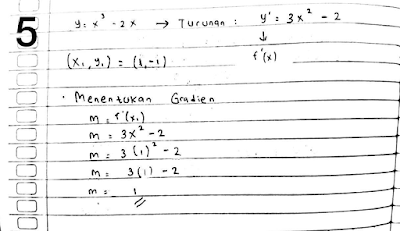 5
y = x³ - 2x → Turunan : y' = 3x² - 2
↓
(x₁, y₁) = (1, -1) f'(x)
• Menentukan Gradien
m = f'(x₁)
m = 3x² - 2
m = 3(1)² - 2
m = 3(1) - 2
m = 1